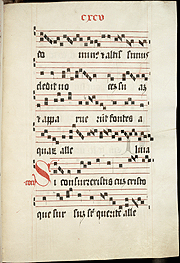 cxcv
do minus et altissimus
dedit uo cem su am
et appa rue runt fontes a
quarum alle luia
Si consurrexistis cum cristo
que sur sum sunt querite alle